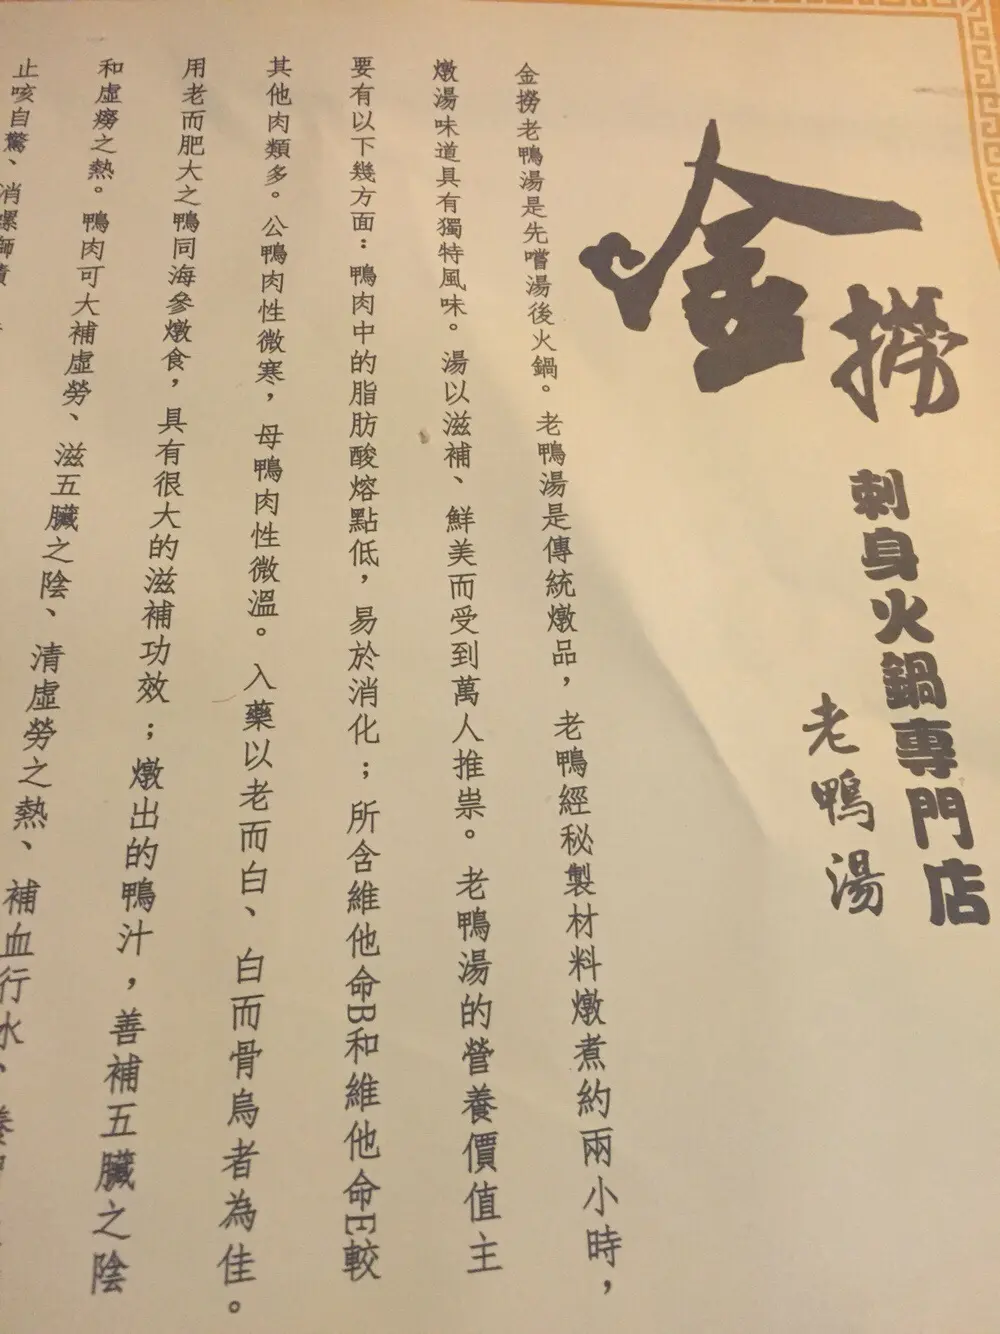 金撈
刺身火鍋專門店
老鴨湯
金撈老鴨湯是先嚐湯後火鍋。老鴨湯是傳統燉品，老鴨經秘製材料燉煮約兩小時，
燉湯味道具有獨特風味。湯以滋補、鮮美而受到萬人推祟。老鴨湯的營養價值主
要有以下幾方面：鴨肉中的脂肪酸熔點低，易於消化；所含維他命B和維他命E較
其他肉類多。公鴨肉性微寒，母鴨肉性微溫。入藥以老而白、白而骨烏者為佳。
用老而肥大之鴨同海參燉食，具有很大的滋補功效；燉出的鴨汁，善補五臟之陰
和虛癆之熱。鴨肉可大補虛勞、滋五臟之陰、清虛勞之熱、補血行水、養
止咳自驚、消螺獅